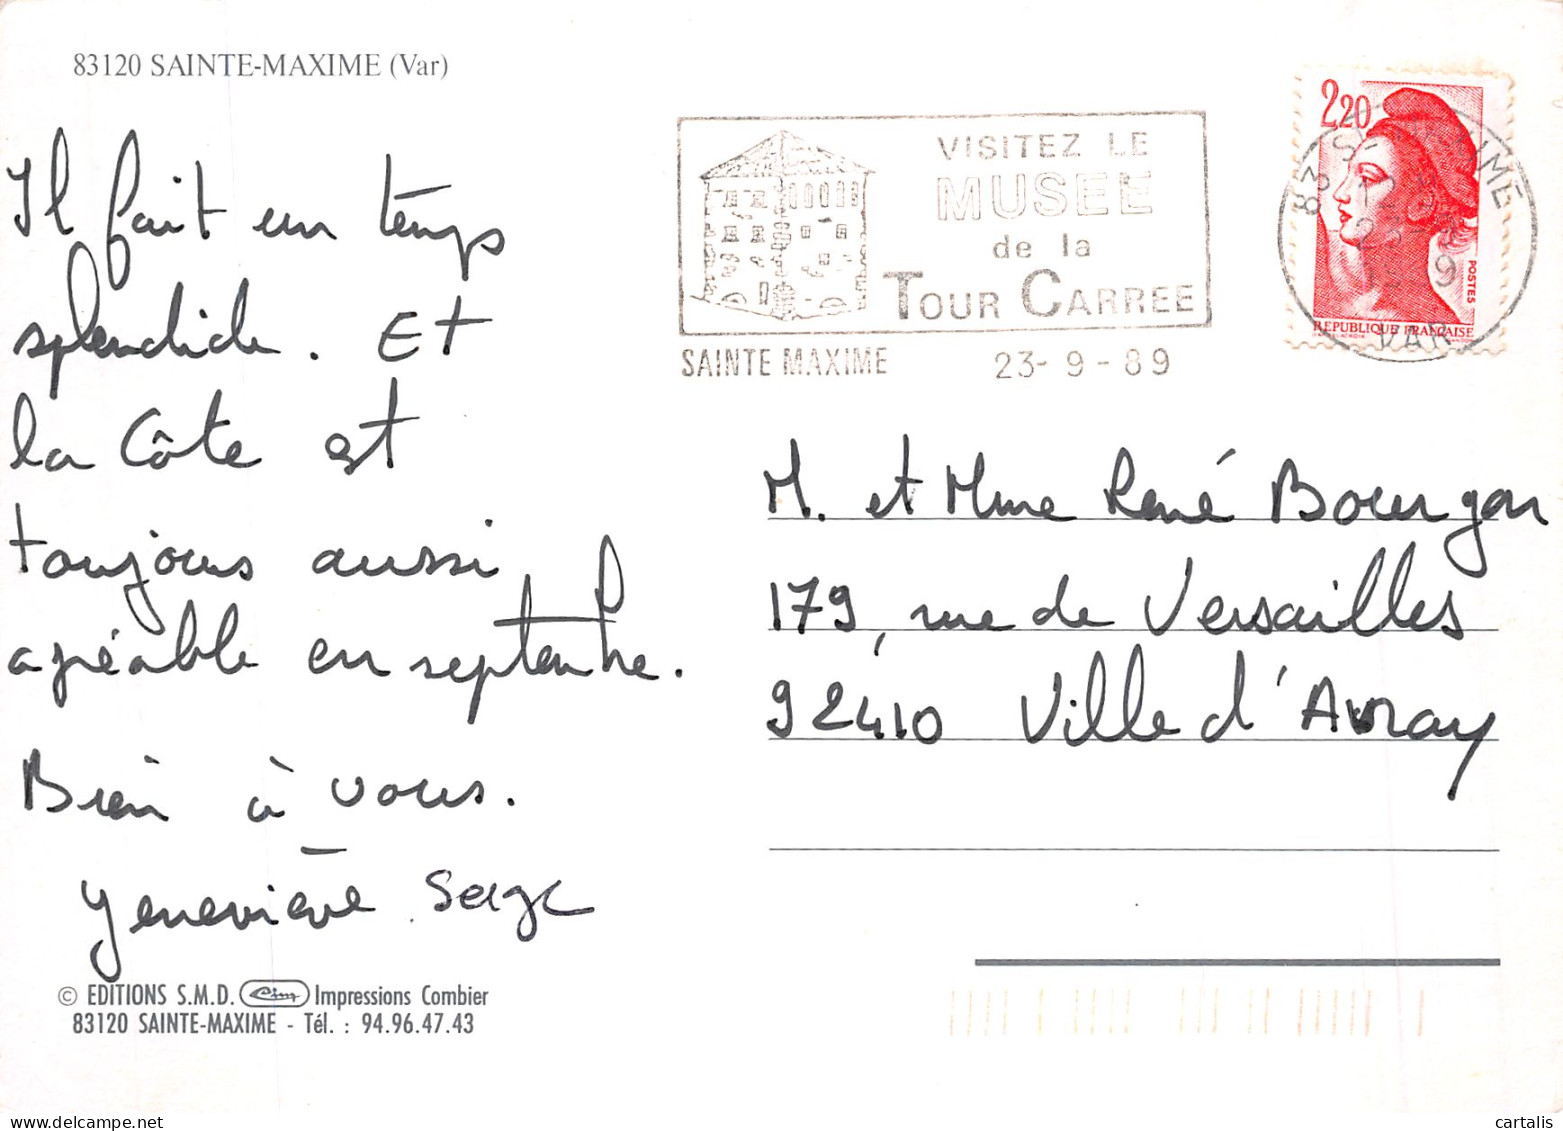 83120 SAINTE-MAXIME (Var)
Il fait un temps
splendide. Et
la Côte est
toujours aussi
agréable en septembre.
Bien à vous.
Geneviève Serge
© EDITIONS S.M.D. Cim Impressions Combier
83120 SAINTE-MAXIME - Tél. : 94.96.47.43
VISITEZ LE
MUSEE
de la
TOUR CARREE
SAINTE MAXIME 23-9-89
2,20
POSTES
REPUBLIQUE FRANÇAISE
VAR
M. et Mme René Bourgon
179, rue de Versailles
92410 Ville d'Avray
cartalis